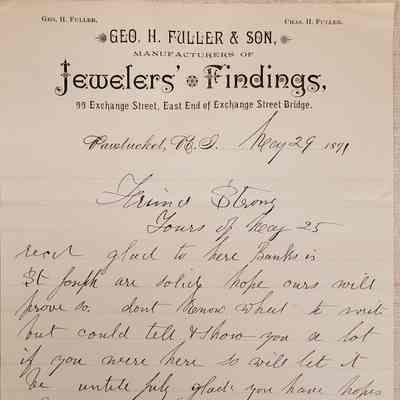 GEO. H. FULLER. CHAS. H. FULLER.
GEO. H. FULLER & SON,
MANUFACTURERS OF
Jewelers' Findings,
99 Exchange Street, East End of Exchange Street Bridge.
Pawtucket, R. I. May 29 1891
Friend Strong
Yours of May 25
recd glad to here Banks in
St Joseph are solid, hope ours will
prove so. dont know what to write
but could tell & show you a lot
if you were here so will let it
be untill July glad you have hopes